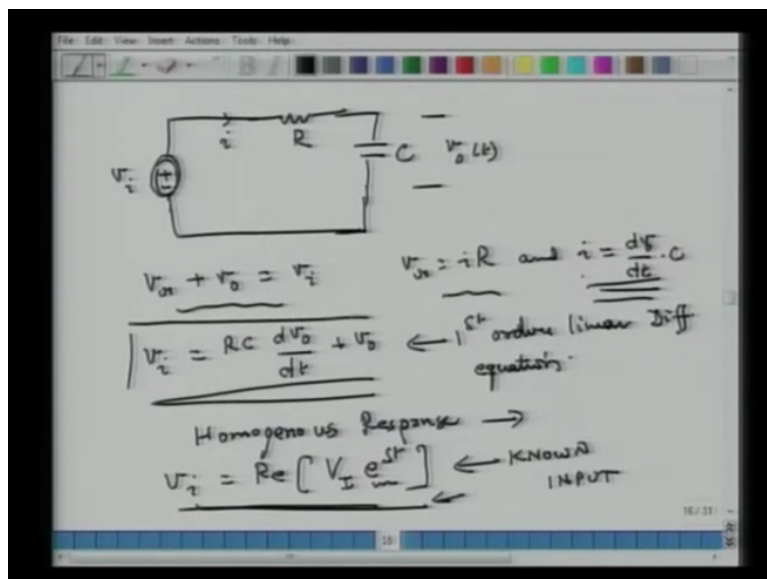 File Edit View Insert Actions Tools Help
i R
v_i + - C v_o(t)
v_r + v_o = v_i v_r = iR and i = dv/dt . C
v_i = RC dv_o/dt + v_o ← 1st order linear Diff
equation.
Homogenous Response →
v_i = Re[V_I e^st] ← KNOWN
INPUT
16/31
16